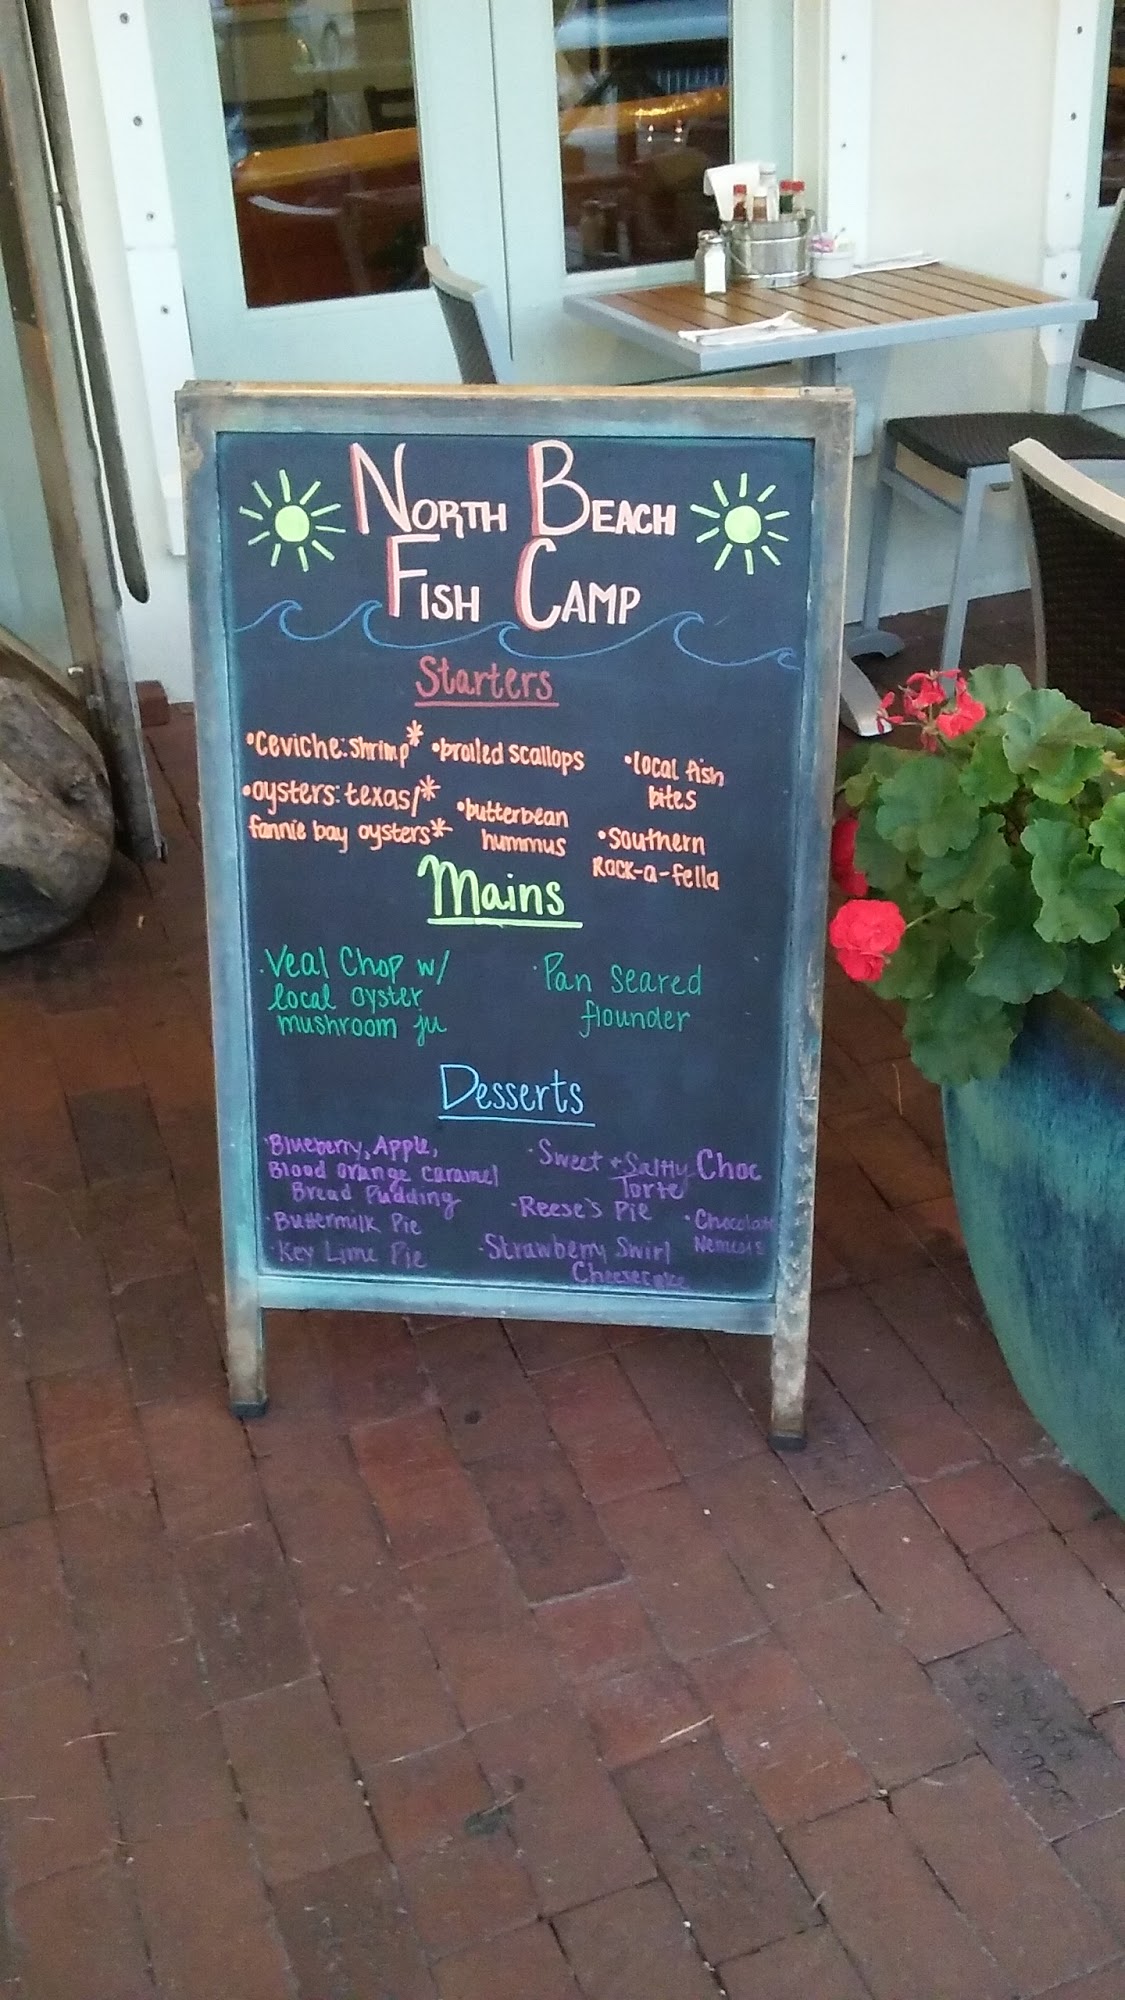 North Beach
Fish Camp
Starters
•Ceviche: shrimp*
•oysters: texas/*
fannie bay oysters*
•broiled scallops
•butterbean
hummus
•local fish
bites
•Southern
Rock-a-fella
Mains
·Veal Chop w/
local oyster
mushroom ju
·Pan Seared
flounder
Desserts
·Blueberry, Apple,
Blood orange caramel
Bread Pudding
·Buttermilk Pie
·Key Lime Pie
·Sweet + Salty Choc
Torte
·Reese's Pie
·Strawberry Swirl
Cheesecake
·Chocolate
Nemesis